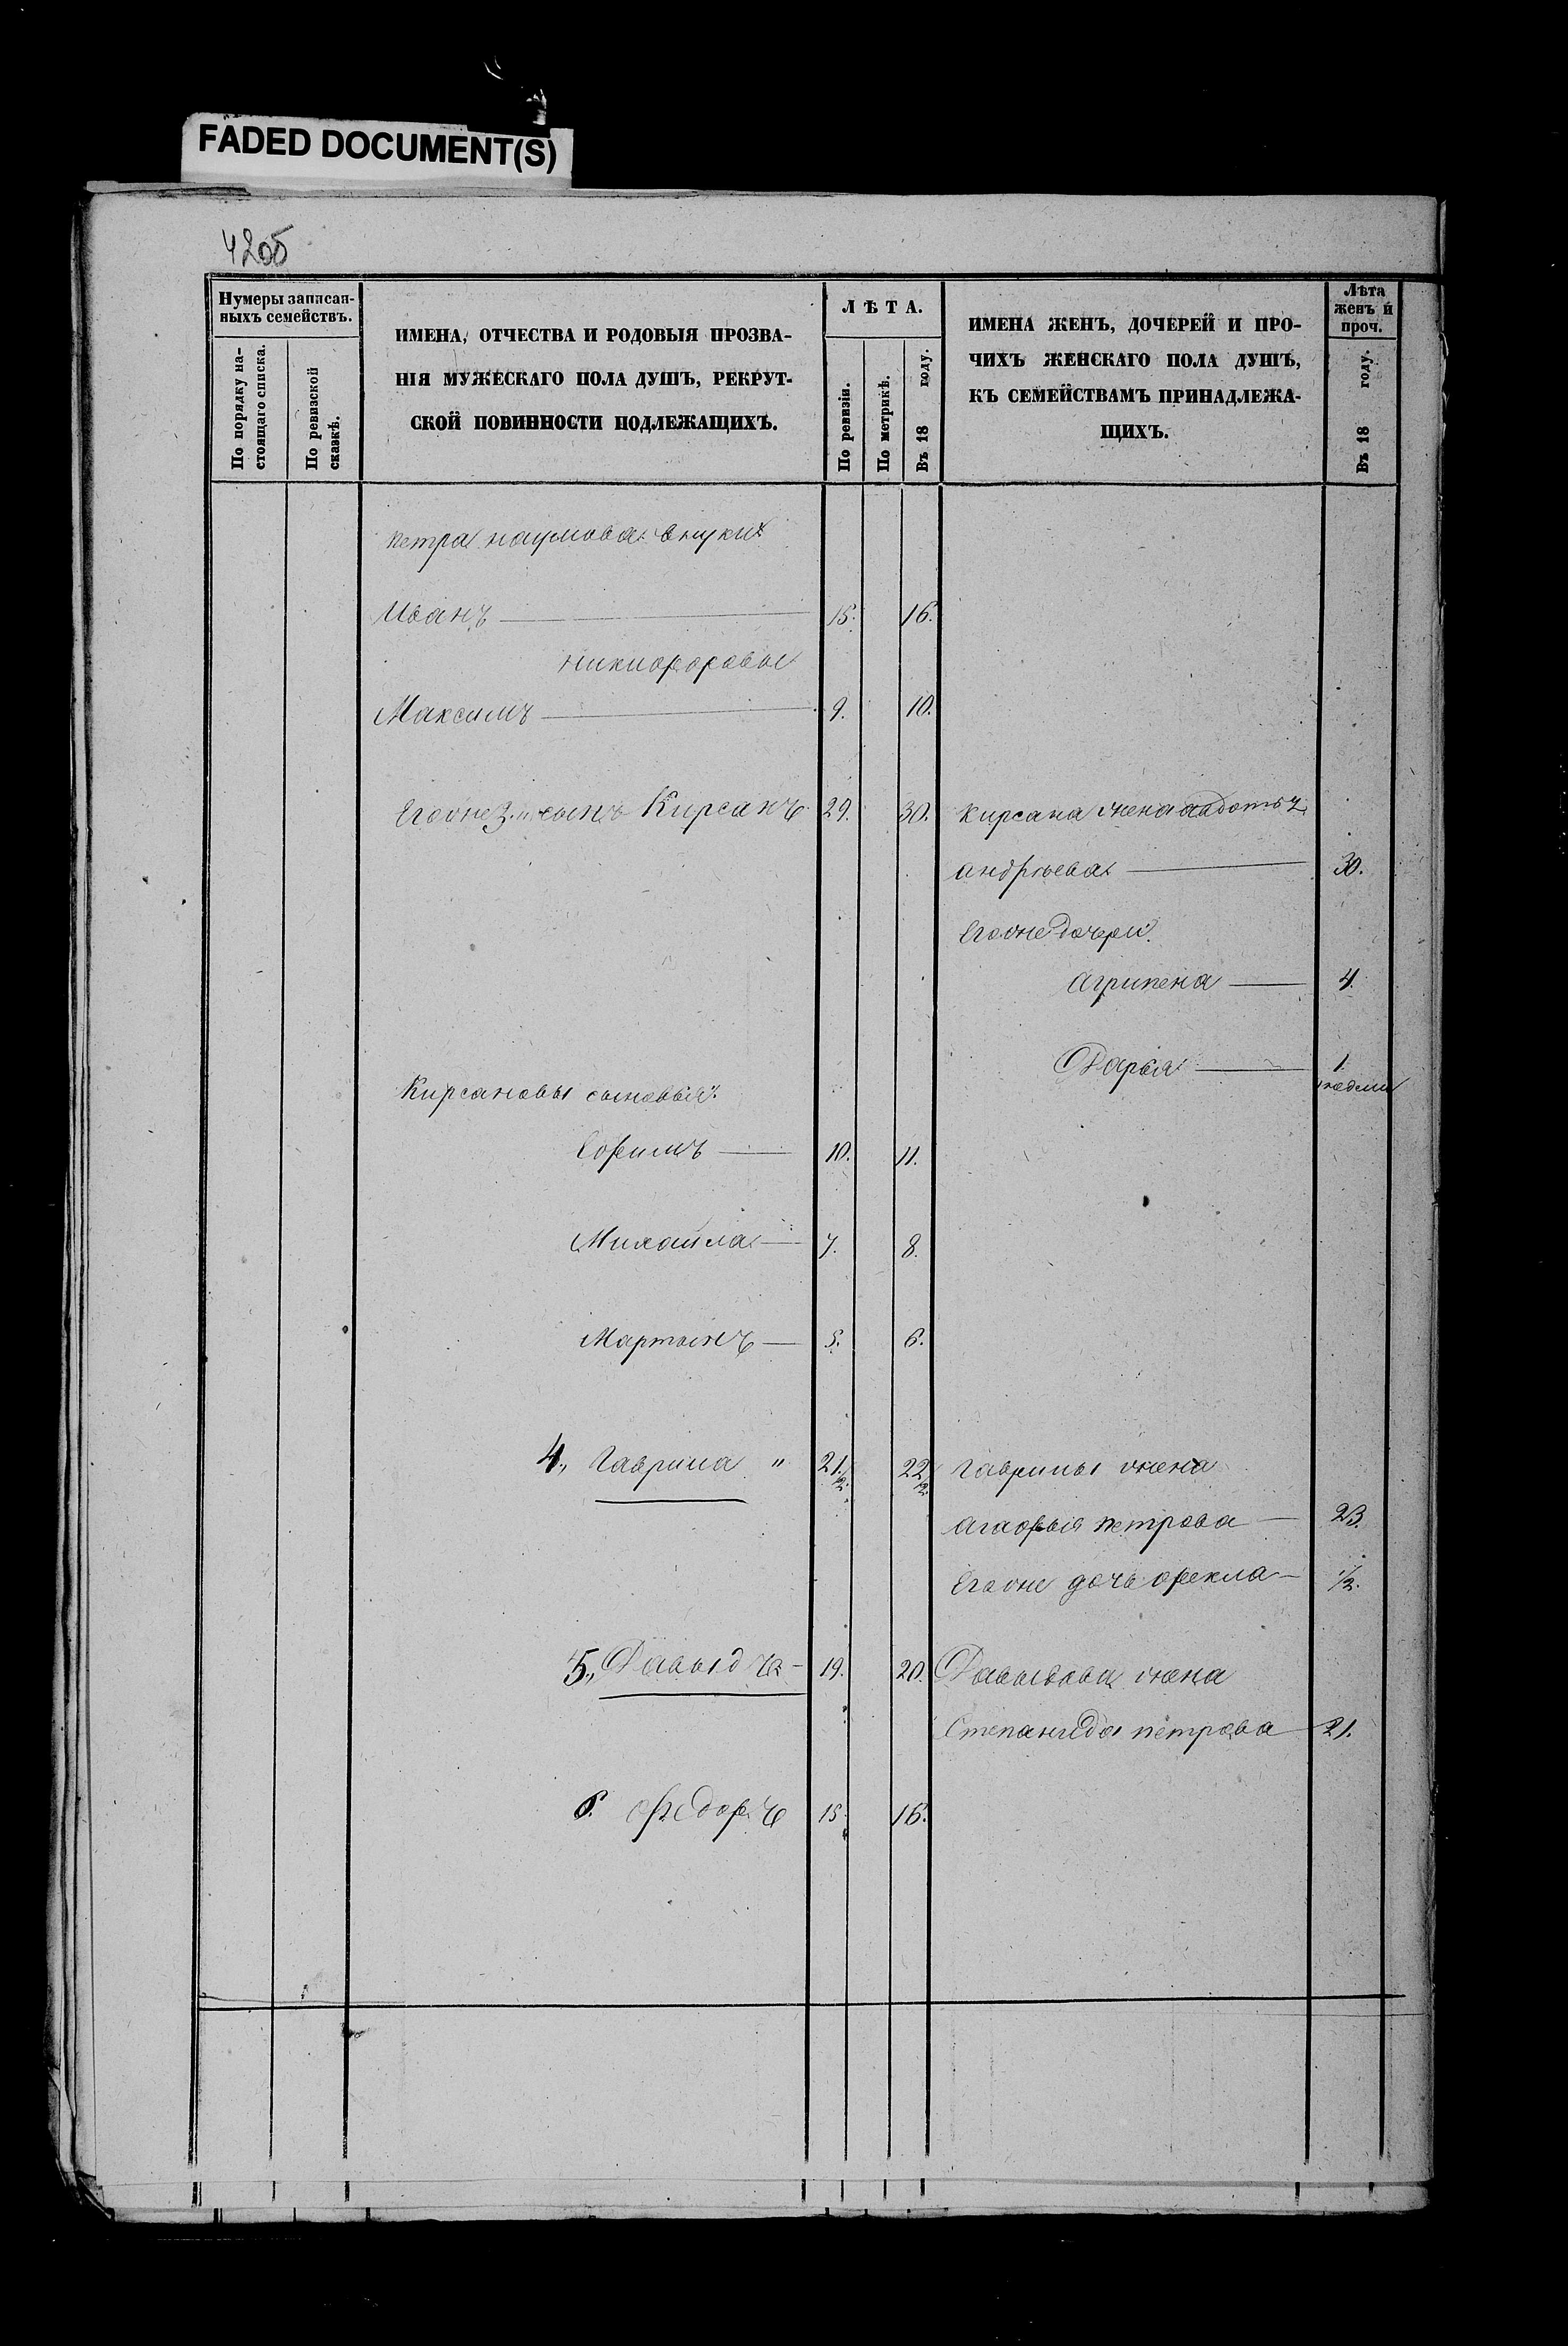 FADED DOCUMENT(S)
4205
Нумеры записан-
ныхъ семействъ.
По порядку на-
стоящаго списка.
По ревизской
сказкѣ.
ИМЕНА, ОТЧЕСТВА И РОДОВЫЯ ПРОЗВА-
НІЯ МУЖЕСКАГО ПОЛА ДУШЪ, РЕКРУТ-
СКОЙ ПОВИННОСТИ ПОДЛЕЖАЩИХЪ.
ЛѢТА.
По ревизіи.
По метрикѣ.
Въ 18 году.
ИМЕНА ЖЕНЪ, ДОЧЕРЕЙ И ПРО-
ЧИХЪ ЖЕНСКАГО ПОЛА ДУШЪ,
КЪ СЕМЕЙСТВАМЪ ПРИНАДЛЕЖА-
ЩИХЪ.
Лѣта
женъ и
проч.
Въ 18 году.
Петра наумова внуки
Иванъ — 15. 16.
никифоровы
Максимъ — 9. 10.
Егоже 3. сынъ Кирсанъ 29. 30. Кирсана жена авдотья
андрѣева — 30.
Егоже дочери
агрипена — 4.
Дарья — 1
недели
Кирсановы сыновья:
Ефимъ — 10. 11.
Михайла — 7. 8.
Мартынъ — 5. 6.
4., Гаврила " 21. 1/2. 22 1/2. Гаврилы жена
агафья петрова — 23.
Егоже дочь фекла — 1/2.
5., Давыдъ — 19. 20. Давыдова жена
Степанида петрова 21.
6. федоръ 15. 16.